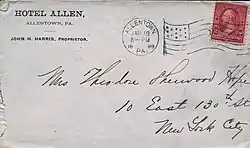 HOTEL ALLEN,
ALLENTOWN, PA.
JOHN H. HARRIS, PROPRIETOR.
ALLENTOWN
JAN 19
8 - PM
PA.
Mrs Theodore Sherwood Hope
10 East 130th St
New York City